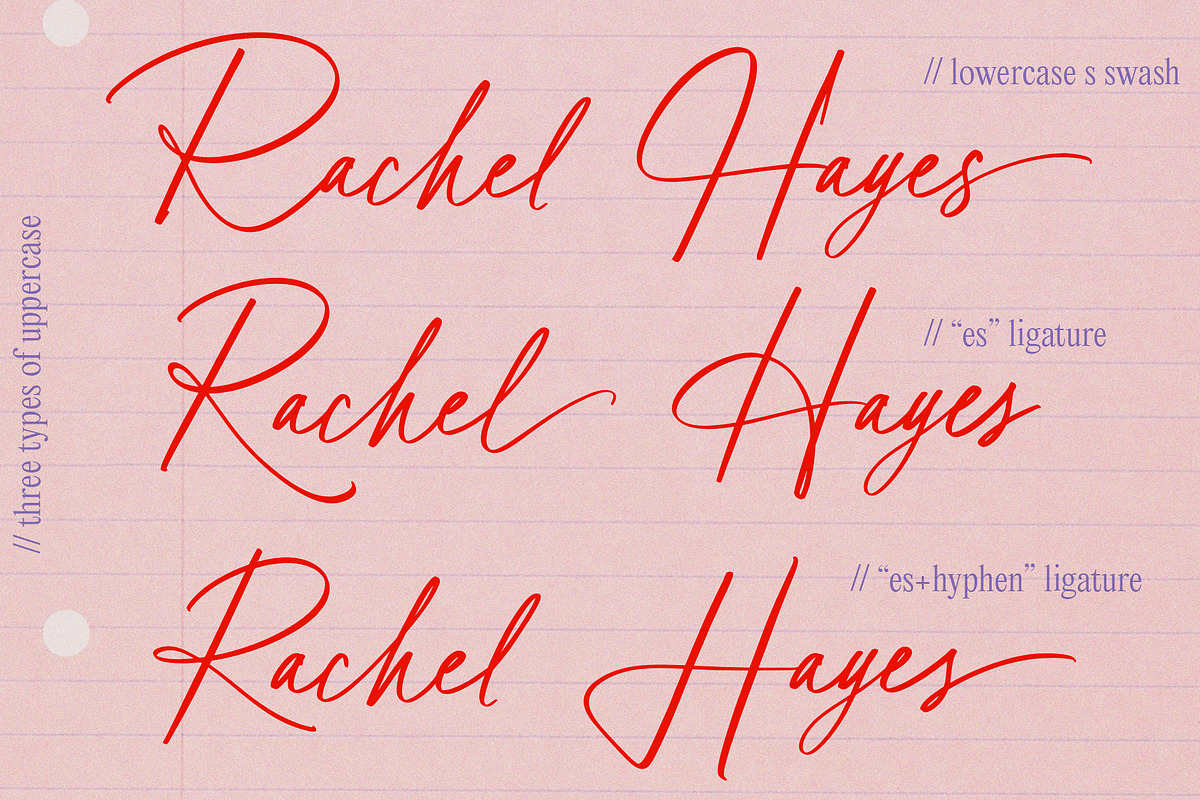 Rachel Hayes
// lowercase s swash
// three types of uppercase
Rachel Hayes
// “es” ligature
Rachel Hayes
// “es+hyphen” ligature